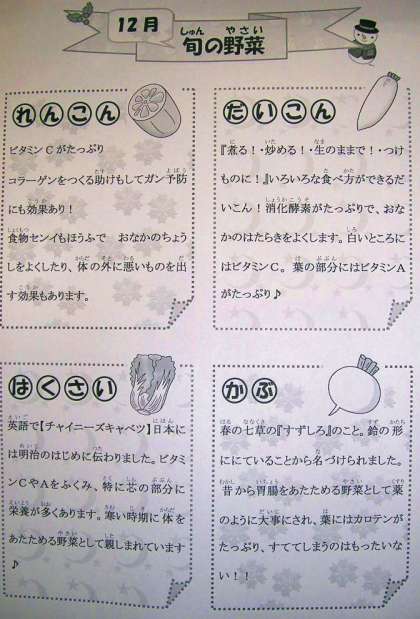 12月
旬の野菜
れんこん
ビタミンCがたっぷり
コラーゲンをつくる助けもしてガン予防
にも効果あり!
食物センイもほうふで おなかのちょう
しをよくしたり、体の外に悪いものを出
す効果もあります。
だいこん
『煮る!・炒める!・生のままで!・つけ
ものに!』いろいろな食べ方ができるだ
いこん!消化酵素がたっぷりで、おな
かのはたらきをよくします。白いところに
はビタミンC。葉の部分にはビタミンA
がたっぷり♪
はくさい
英語で【チャイニーズキャベツ】日本に
は明治のはじめに伝わりました。ビタミ
ンCやAをふくみ、特に芯の部分に
栄養が多くあります。寒い時期に体を
あたためる野菜として親しまれています
♪
かぶ
春の七草の『すずしろ』のこと。鈴の形
ににていることから名づけられました。
昔から胃腸をあたためる野菜として薬
のように大事にされ、葉にはカロテンが
たっぷり、すててしまうのはもったいな
い!!